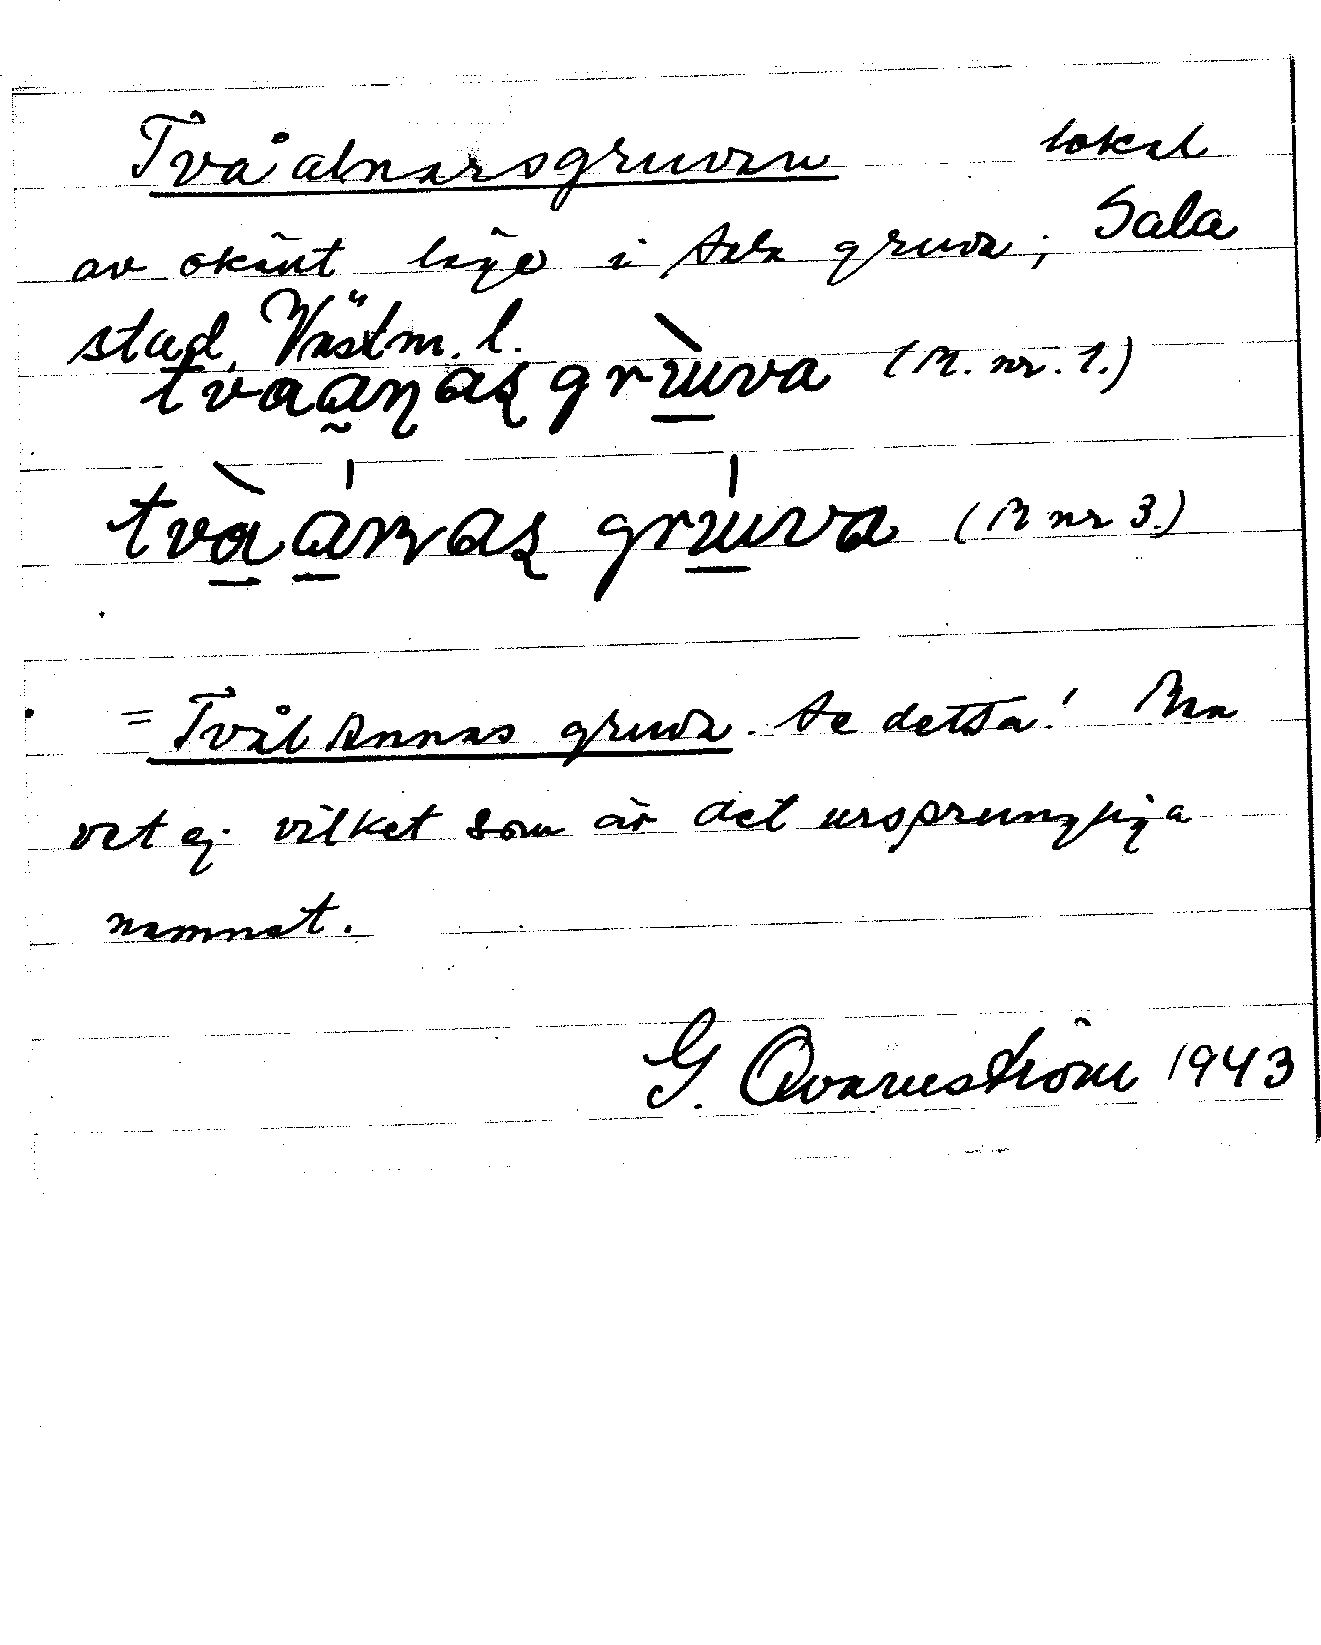 Tvåalnarsgruvan lokal
av okänt läge i Sala gruva; Sala
stad, Västm. l.
tvaaṇas grùva (M. nr. 1.)
tvàánnas grúva (M nr 3.)
= Tvål Annas gruva. Se detta! Man
vet ej vilket som är det ursprungliga
namnet.
G. Qvarnström 1943